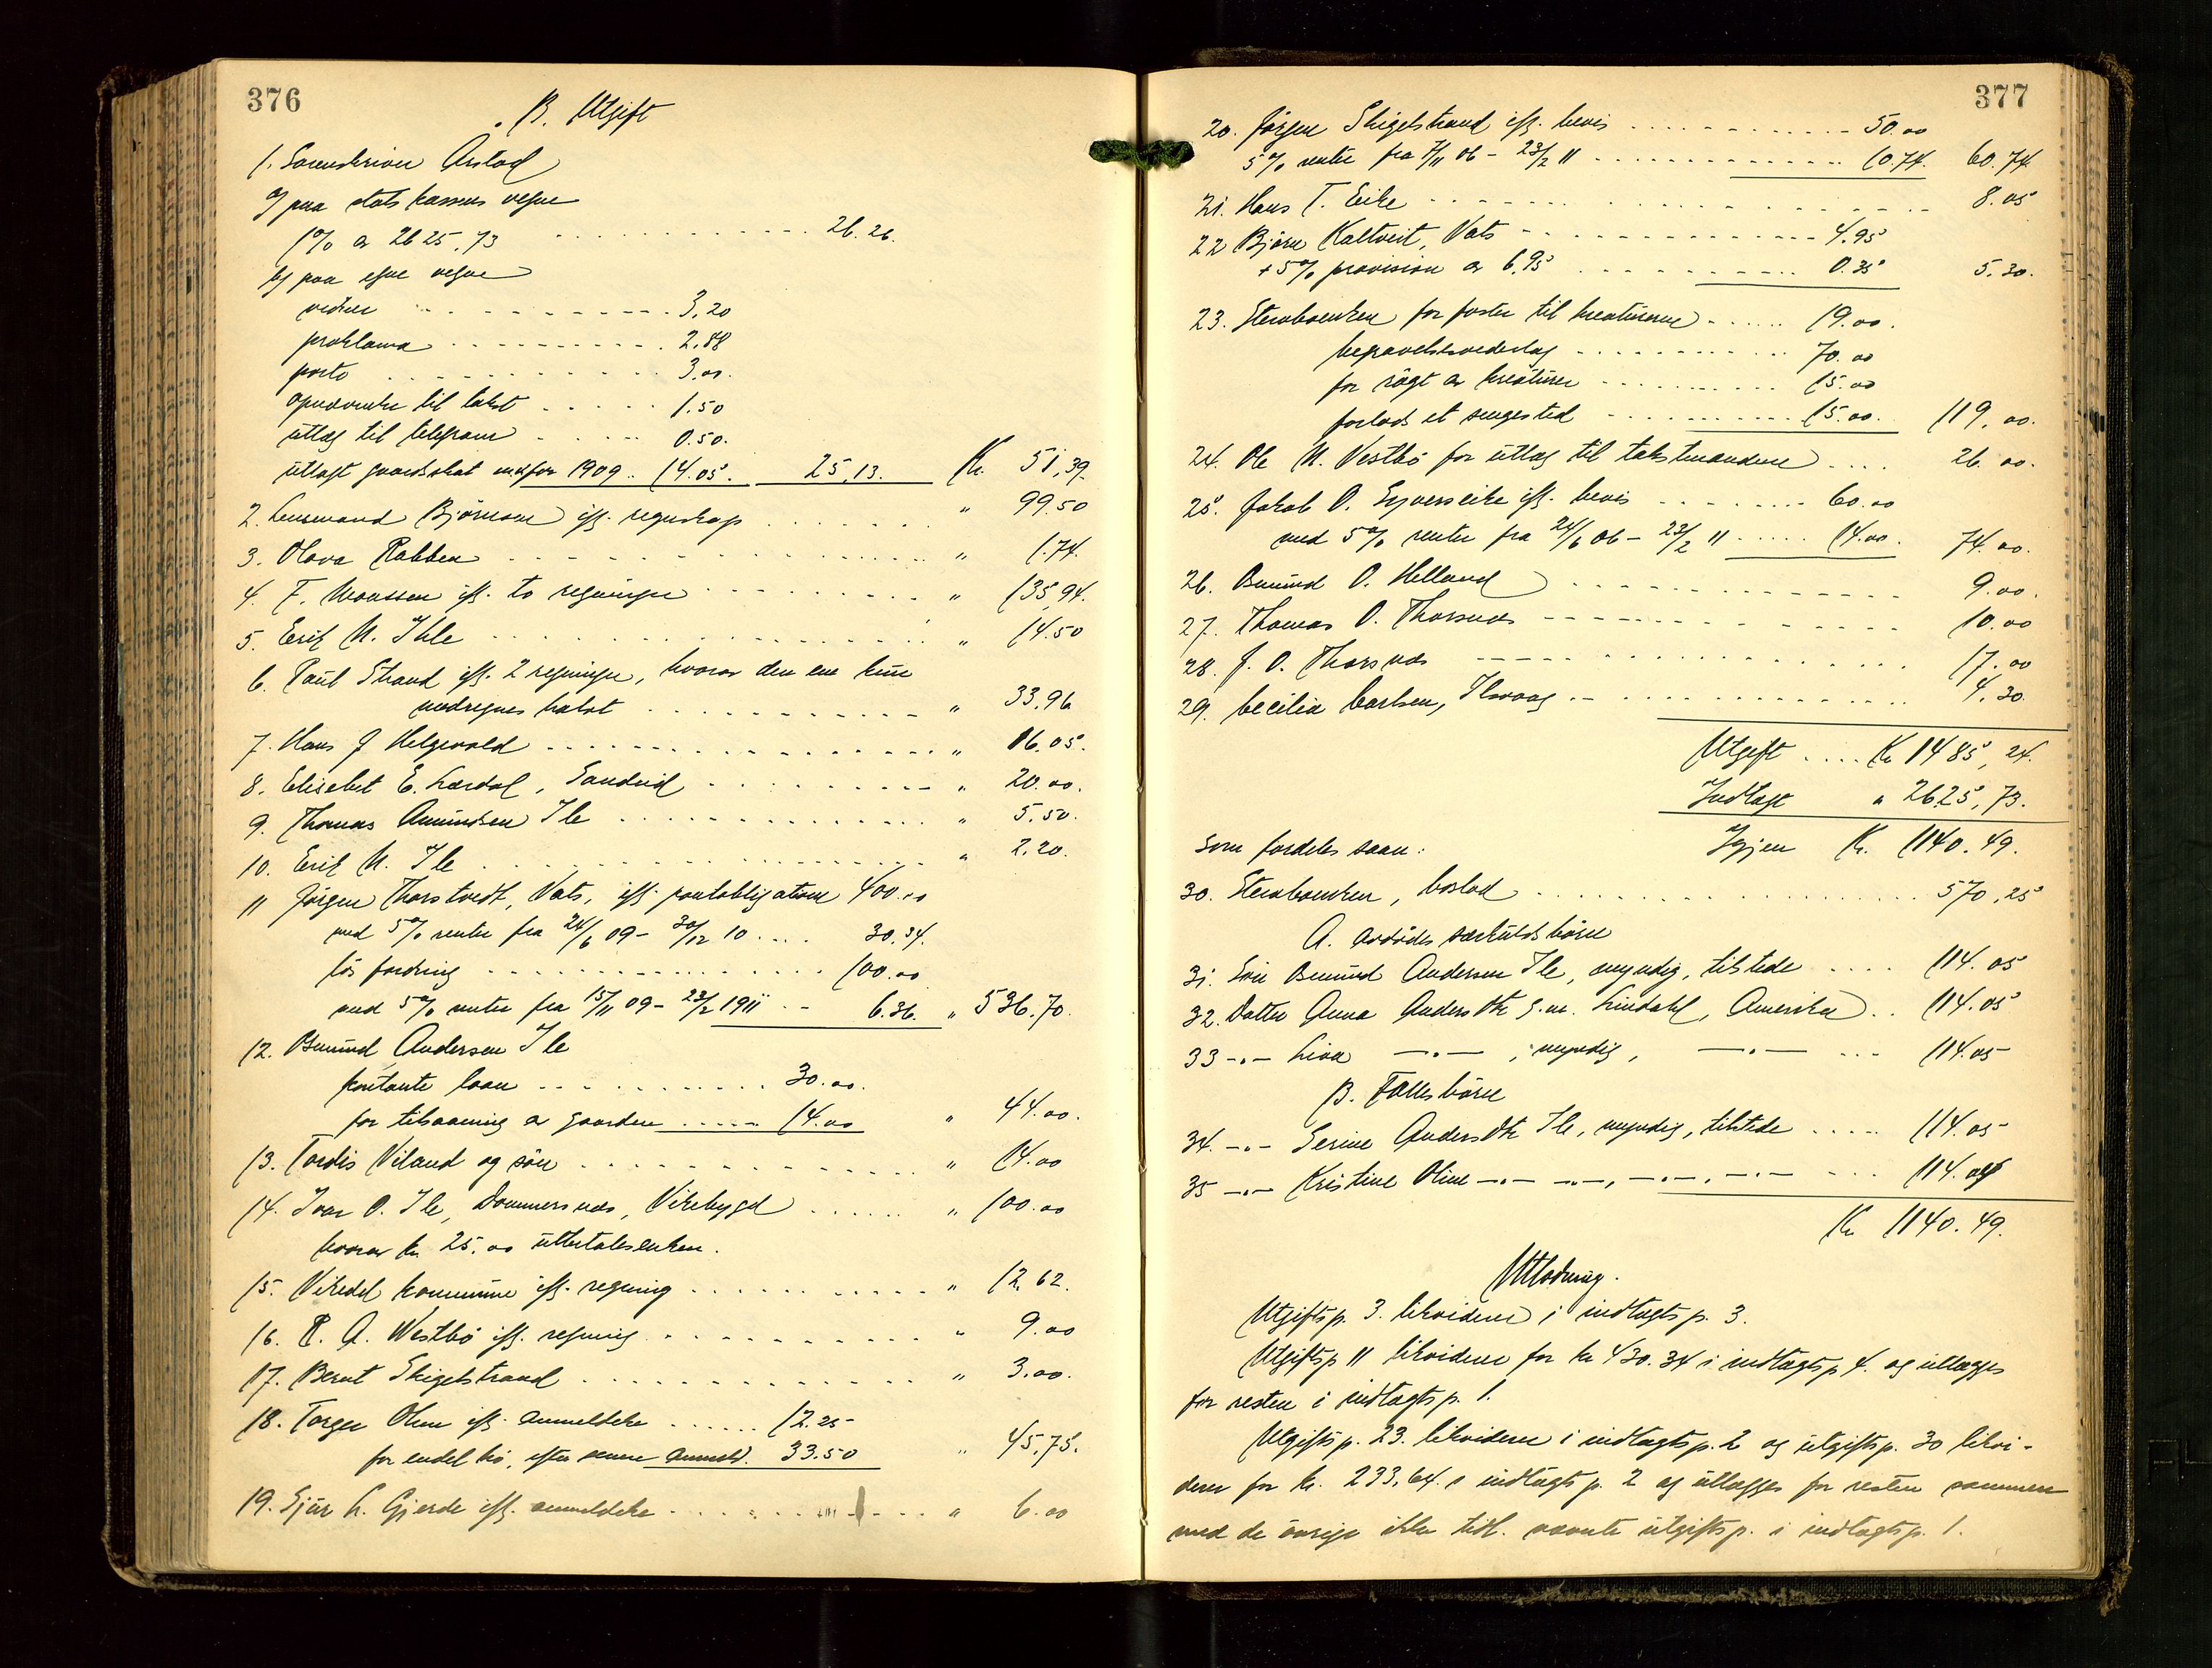 376
B. Utgift
1. Sorenskriver Aarstad
a) paa statskassens vegne
1% av 2625,73 26.26.
b) paa egne vegne
vidner 3,20
proklama 2.88
porto 3.00.
opnævnelse til takst 1.50
utlæg til telegram 0.50.
utlagt gaardskat 1909 14.05. 25,13. Kr. 51,39
2. Lensmand Björnsen ifl. regnskap " 99.50
3. Olava Rabben " 1.74.
4. F. Monssen ifl. to regninger " 135,94.
5. Erik N. Ihle " 14.50
6. Paul Strand ifl. 2 regninger, hvorav den ene kun
medregnes halvt " 33.96
7. Hans J Helgevold " 16.05.
8. Elisabet E. Lærdal, Sandeid " 20.00.
9. Thomas Amundsen Ile " 5.50.
10. Erik N. Ile " 2.20.
11 Jörgen Thorstvedt, Vats, ifl. pantobligation 400.00
med 5% renter fra 24/6 09 - 30/12 10 30.34.
lös fordring 100.00
med 5% renter fra 15/11 09 - 23/2 1911 6.36. " 536.70.
12. Amund Andersen Ile
kontante laan 30.00.
for tilsaaning av gaarden 14.00 " 44.00.
13. Tordis Viland og sön " 14.00
14. Ivar O. Ile, Dommersnes, Vikebygd " 100.00
hvorav kr. 25.00 utbetales enken.
15. Vikedal kommune ifl. regning " 12.62.
16. R. A. Westbö ifl. regning " 9.00
17. Berent Skigelstrand " 3.00.
18. Torger Olsen ifl. anmeldelse 12.25
for endel hö, efter senere anmeld. 33.50 " 45,75.
19. Sjur L. Gjerde ifl. anmeldelse " 6.00
377
20. Jörgen Skigelstrand ifl. bevis 50.00
5% renter fra 7/11 06 - 23/2 11 10.74. 60.74
21. Hans T. Eike 8.05
22 Björn Kaltveit, Vats 4.95
+ 5% provision av 6,95 0.35 5.30.
23. Stervboenken for foster til kreaturerne 19.00.
begravelsesvederlag 70.00
for rögt av kreaturer 15.00
forlods et sengested 15.00. 119,00.
24. Ole N. Vestbö for utlæg til takstmændene 26.00.
25. Jakob O. Sjverseike ifl. bevis 60.00
med 5% renter fra 24/6 06 - 23/2 11 14.00. 74.00.
26. Amund O. Helland 9.00.
27. Thomas O. Thorsnes 10.00
28. J. O. Thorsnes 17.00
29. Cecilia Carlsen, Ilsvaag 4.30.
Utgift Kr 1485,24.
Indtægt " 2625,73.
Igjen Kr. 1140.49.
Som fordeles saa:
30. Stervboenken, boslod 570,25
A. avdödes særkuldsbörn
31. Sön Amund Andersen Ile, myndig, tilstede 114.05
32. Datter Anna Andersdtr g.m. Lindahl, Amerika 114.05
33 -"- Lina -"-, myndig, -"- 114.05
B. Fællesbörn
34. -"- Serine Andersdtr Ile, myndig, tilstede 114.05
35 -"- Kristine Oline -"- -"-, -"-, -"- 114.04
Kr 1140.49.
Utlodning.
Utgiftsp. 3. likvideres i indtægtsp. 3.
Utgiftsp 11 likvideres for kr 430.34 i indtægtsp 4. og utlægges
for resten i indtægtsp. 1.
Utgiftsp. 23. likvideres i indtægtsp. 2 og utgiftsp. 30 likvi-
deres for kr. 233,64. i indtægtsp. 2 og utlægges for resten sammen
med de övrige ikke tidl. nævnte utgiftsp. i indtægtsp. 1.